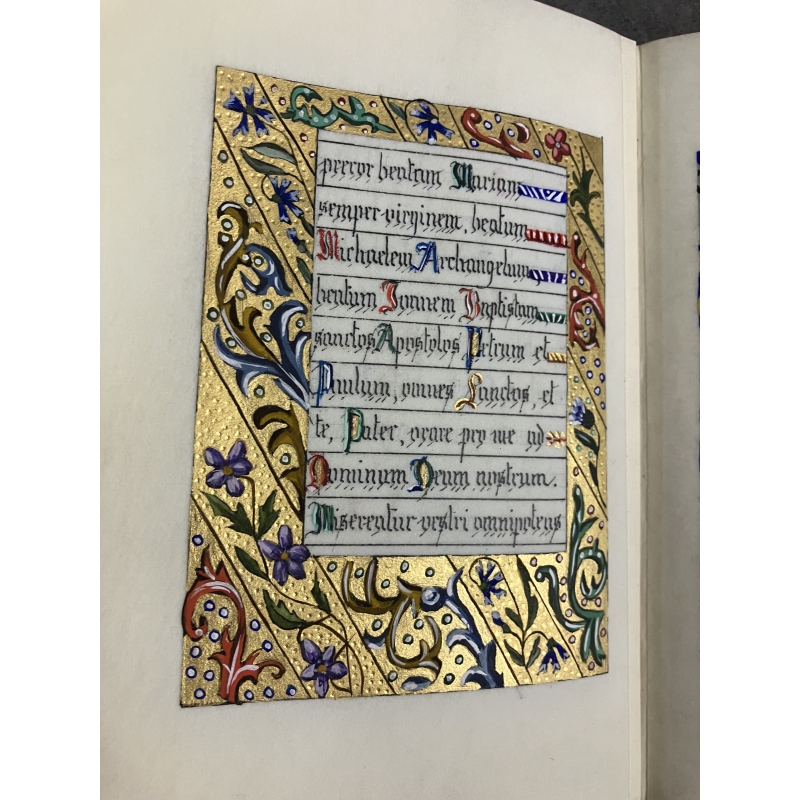 precor beatam Mariam
semper virginem, beatum
Michaelem Archangelum
beatum Joanem Baptistam
sanctos Apostolos Petrum et
Paulum, omnes Sanctos, et
te, Pater, orare pro me ad
Dominum Deum nostrum.
Misereatur vestri omnipotens